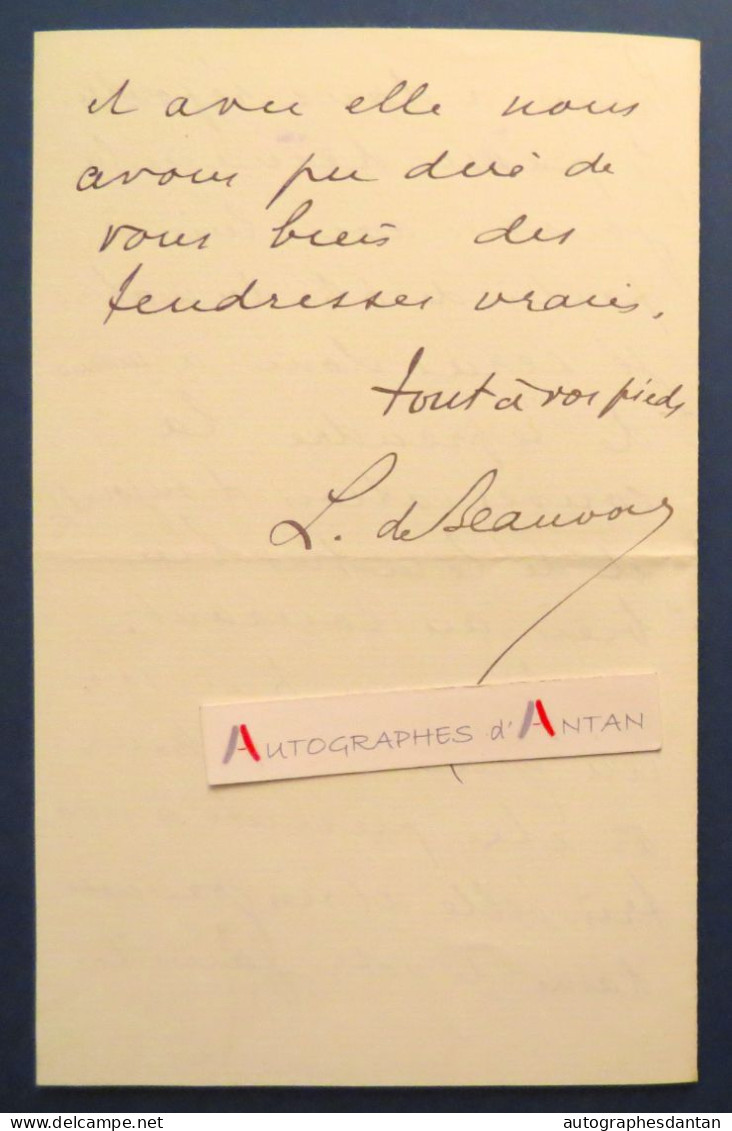 et avec elle nous
avons pu dire de
vous bien des
tendresses vraies.
tout à vos pieds
L. de Beauvoir
AUTOGRAPHES d'ANTAN
delcampe.net
autographesdantan